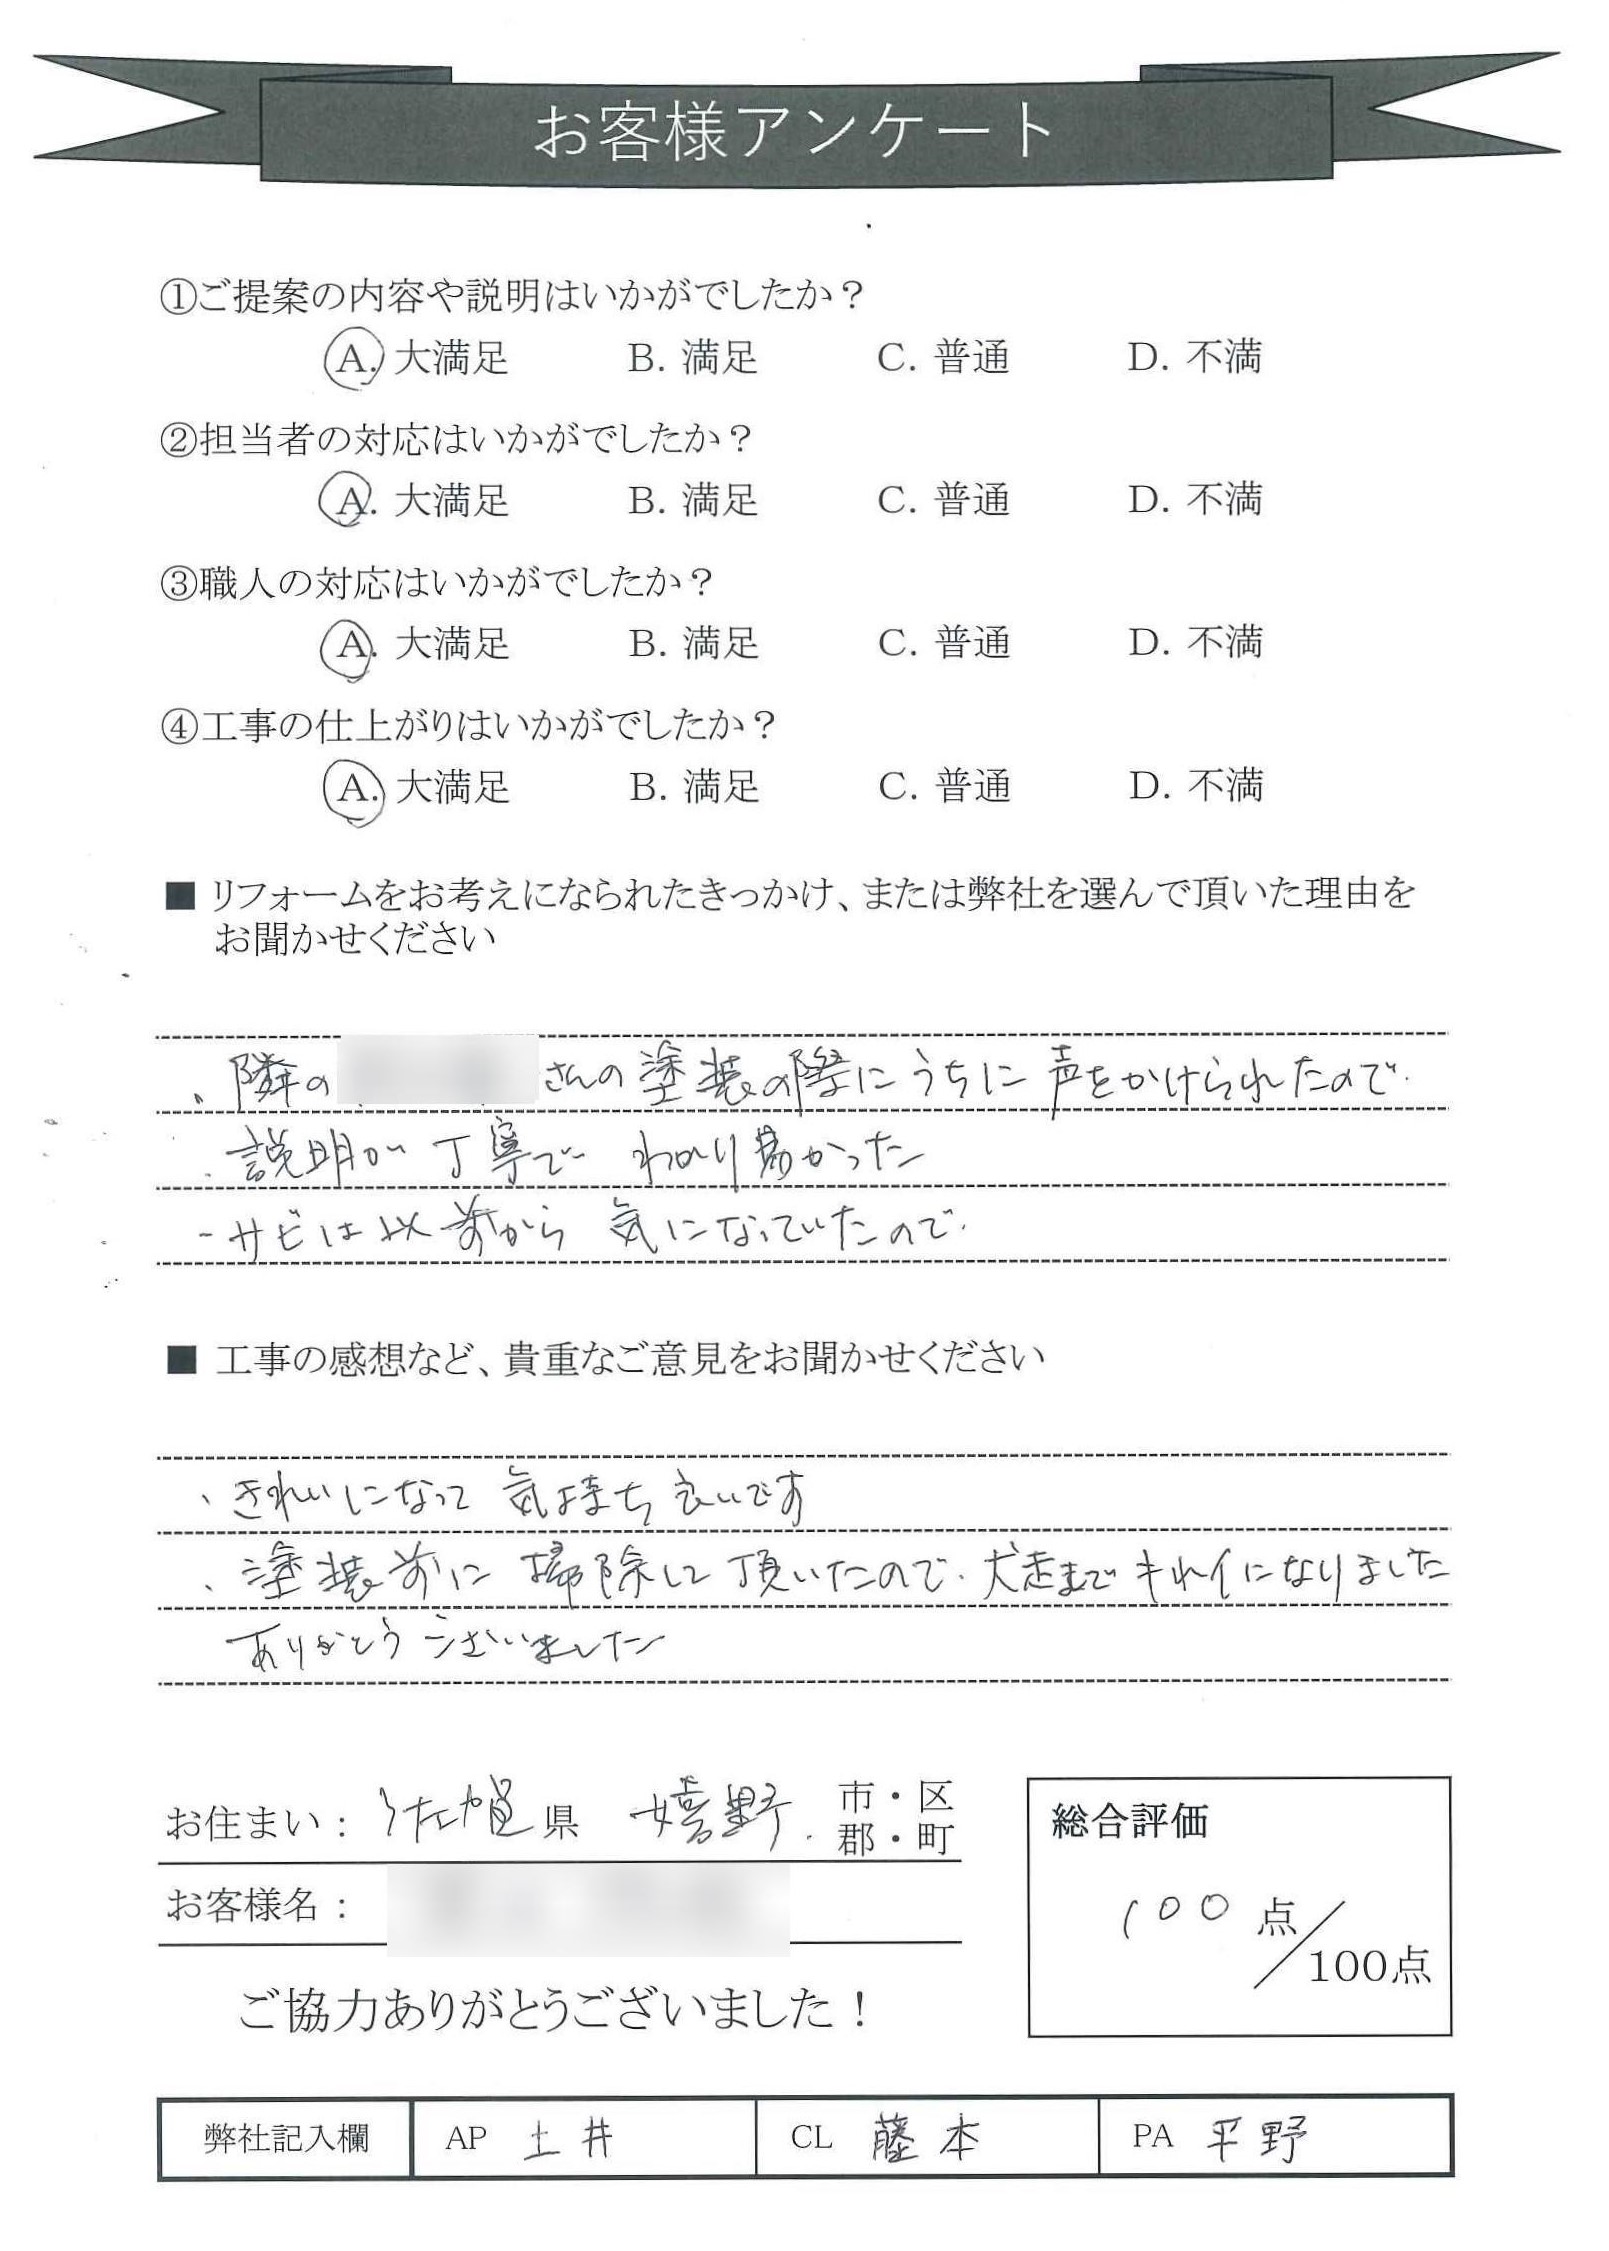 お客様アンケート
①ご提案の内容や説明はいかがでしたか？
A. 大満足 B. 満足 C. 普通 D. 不満
②担当者の対応はいかがでしたか？
A. 大満足 B. 満足 C. 普通 D. 不満
③職人の対応はいかがでしたか？
A. 大満足 B. 満足 C. 普通 D. 不満
④工事の仕上がりはいかがでしたか？
A. 大満足 B. 満足 C. 普通 D. 不満
■ リフォームをお考えになられたきっかけ、または弊社を選んで頂いた理由を
お聞かせください
、隣の さんの塗装の際にうちに声をかけられたので.
. 説明が丁寧で わかり易かった
- サビは以前から 気になっていたので.
■ 工事の感想など、貴重なご意見をお聞かせください
、きれいになって 気持ち良いです
、塗装前に 掃除して頂いたので. 犬走までキレイになりました
ありがとうございました
お住まい： 佐賀県 嬉野. 市・区
郡・町
お客様名：
ご協力ありがとうございました！
総合評価
100 点／100点
弊社記入欄 AP 土井 CL 藤本 PA 平野